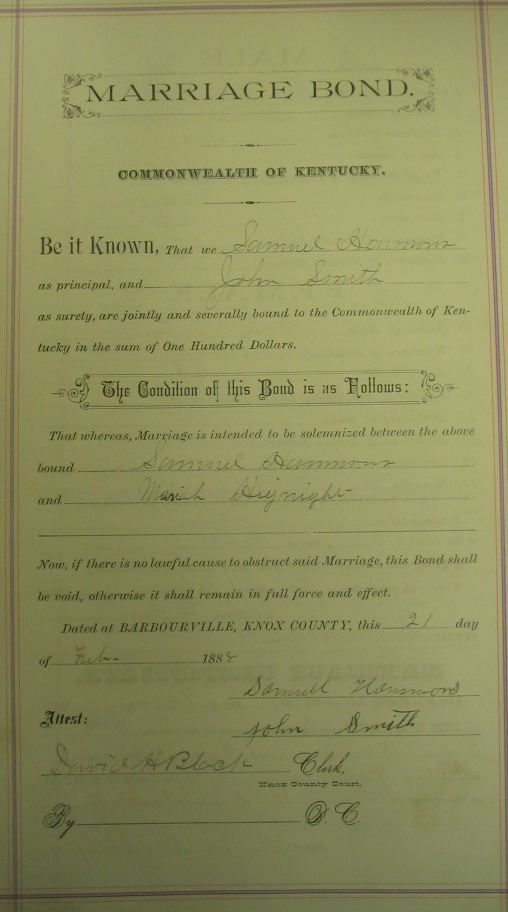 MARRIAGE BOND.
COMMONWEALTH OF KENTUCKY.
Be it Known, That we Samuel Hammons
as principal, and John Smith
as surety, are jointly and severally bound to the Commonwealth of Ken-
tucky in the sum of One Hundred Dollars.
The Condition of this Bond is as Follows:
That whereas, Marriage is intended to be solemnized between the above
bound Samuel Hammons
and Mariah Hignight
Now, if there is no lawful cause to obstruct said Marriage, this Bond shall
be void, otherwise it shall remain in full force and effect.
Dated at BARBOURVILLE, KNOX COUNTY, this 21 day
of Feb- 1888
Samuel Hammons
Attest: John Smith
David H Black Clerk,
Knox County Court.
By D. C.